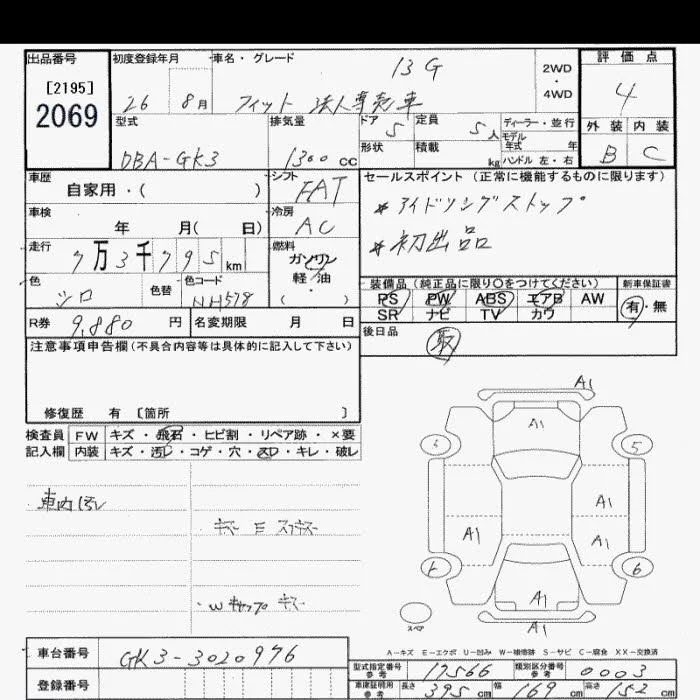 出品番号 初度登録年月 車名・グレード 評価点
[2195] 13G 2WD・4WD 4
2069 26 8月 フィット 法人専売車
型式 排気量 ドア 5 定員 5人 ディーラー・並行 外装 内装
モデル年式 年
DBA-GK3 1300cc 形状 積載 kg ハンドル 左・右 B C
車歴 シフト セールスポイント (正常に機能するものに限ります)
自家用・( ) FAT
車検 冷房 *アイドリングストップ
年 月( 日) AC
走行 燃料 *初出品
7万3千795km ガソリン
色 色替 色コード 軽・油 装備品 (純正品に限り○をつけてください) 新車保証書
シロ NH578 ( ・ ) PS PW ABS エアB AW 有・無
R券 9,880円 名変期限 月 日 SR ナビ TV カワ
注意事項申告欄 (不具合内容等は具体的に記入して下さい) 後日品
取
修復歴 有 [箇所 ]
検査員 FW キズ・飛石・ヒビ割・リペア跡・×要
記入欄 内装 キズ・汚レ・コゲ・穴・スレ・キレ・破レ
車内汚レ
A1
A1
5 5
A1
A1 A1
6
A1
A1
スペア
A-キズ E-エクボ U-凹み W-補修跡 S-サビ C-腐食 XX-交換済
車台番号 GK3-3020976
型式指定番号 参考 17566 類別区分番号 参考 0003
登録番号 車庫証明用 参考 長さ 395cm 幅 169cm 高さ 152cm